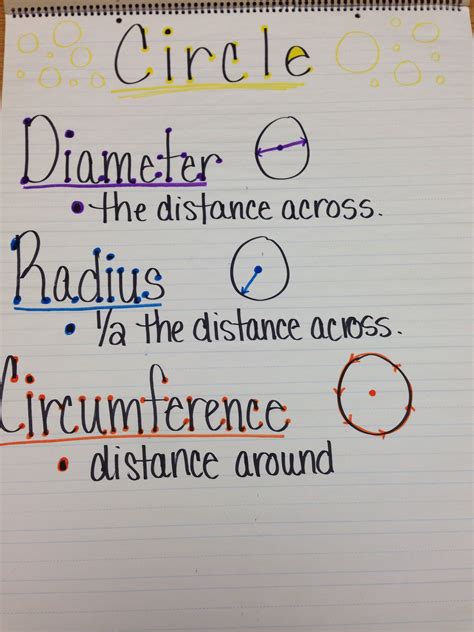 Circle
Diameter
• the distance across.
Radius
• 1/2 the distance across.
Circumference
• distance around